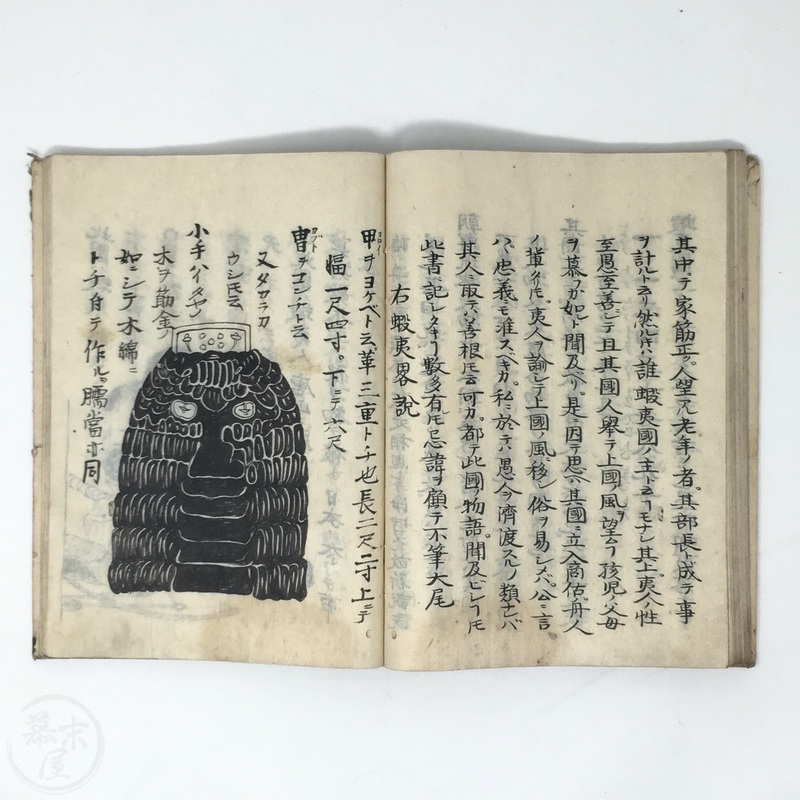 其中ニテ家筋正ク人望アル老年ノ者。其部長ト成テ事
ヲ計ルト云リ然レバ誰蝦夷國ノ主ト云フモナシ其上夷人ノ性
至愚至善ニシテ且其國人舉テ上國ノ風ヲ望ムコト孩児ノ父母
ヲ慕フガ如シト聞及ベリ。是ニ因テ思ヘバ其國ニ立入商估舟人
ノ輩タリトモ。夷人ヲ諭シテ上國ノ風ニ移シ俗ヲ易シメバ。公ニ言
ハバ忠義ニモ准スベキカ。私ニ於テハ愚人ヲ濟渡スルノ類ナレバ
其人ニ取テハ善根トモ云可カ。都テ此國ノ物語。聞及ビシコトモ
此書ニ記シタキコト數多有トモ忌諱ヲ顧テ不筆大尾
右蝦夷畧説
甲ヲヨケベト云、革三重トヂ也長二尺二寸上ニテ
幅一尺四寸。下ニテ六尺
ヨロイ
冑ヲコンチト云
カブト
又タカラカ
ウシモ云
小手ハイタヤノ
木ヲ筋金ノ
如ニシテ木綿ニ
トヂ付テ作ル。臑當亦同
幕末屋